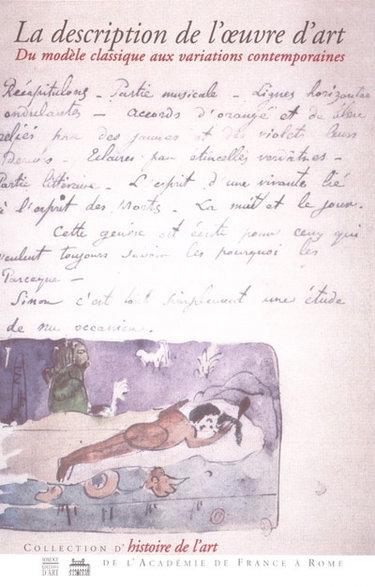 La description de l'œuvre d'art
Du modèle classique aux variations contemporaines
Récapitulons _ Partie musicale _ Lignes horizontales
ondulantes _ accords d'orangé et de bleu
reliés par des jaunes et des violets leurs
Dérivés _ Eclairés par étincelles verdâtres _
Partie littéraire _ L'esprit d'une vivante lié
à l'esprit des Morts _ La nuit et le jour.
Cette genèse est écrite pour ceux qui
veulent toujours savoir les pourquoi les
Parceque _
Sinon c'est tout simplement une étude
de nu océanien.
COLLECTION D'histoire de l'art
SOMOGY
ÉDITIONS
D'ART
DE L'ACADÉMIE DE FRANCE À ROME